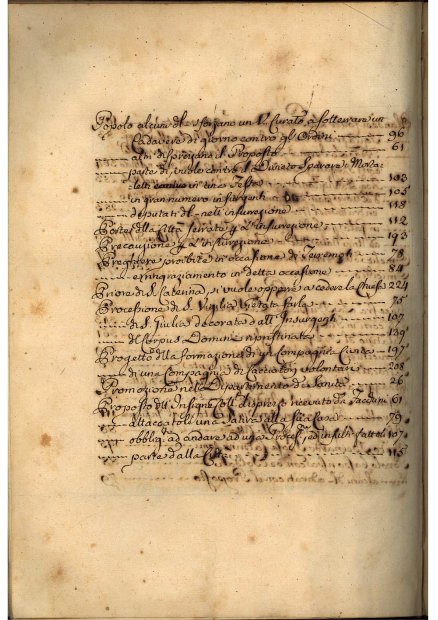 Popolo alcuni di esso sforzano un V. Curato a sotterrare un
Cadavere di giorno contro gl'Ordini 96
altri disprezzano il Proposto 61
parte di, vuole contro il Divieto sparare i Morta
letti 103
in gran numero insurgenti 105
deputati nell'insurezione 118
Porte della Città serrate p l'insurezione 112
Precauzione p l'insurezione 193
Preghiere proibite in occasione di Teremoti 78
e ringraziamento in detta occasione 84
Priore di S. Caterina, si vuole opporre a cedere la Chiesa 224
Processione di S. Vigilia vietata farla 75
di S. Giulia decorata dall'Insurgenti 107
del Corpus Domini ripristinata 139
Progetto della formazione di un Compagnia Civica 197
di una Compagnia di Cacciatori volontari 208
Promozione nel Dipartimento di Sanità 26
Proposto dell'Insigne Coll. disprezzo ricevuto da Facchini 61
attaccatoli una Satira alla sua Casa 79
obbligo ad andare ad una Process. ad insulti fattoli 107
parte dalla Città 115